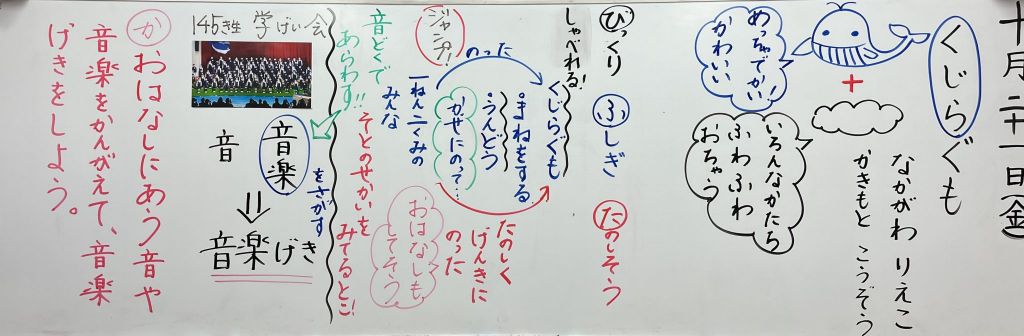 十月二十一日(金)
くじらぐも
なかがわ りえこ
かきもと こうぞう
+
めっちゃでかい!
かわいい
いろんなかたち
ふわふわ
おちゃう
びっくり
ふしぎ
たのしそう
しゃべれる!
くじらぐも
・まねをする
・うんどう
かぜにのって…
一ねん二くみの
みんな
のった
ジャンプ!
たのしく
げんきに
のった
おはなしも
してそう
音どくで
あらわす!!
そとのせかいを
みてるとこ!
145き生 学げい会
音楽
をさがす
音
音楽げき
かおはなしにあう音や
音楽をかんがえて、音楽
げきをしよう。